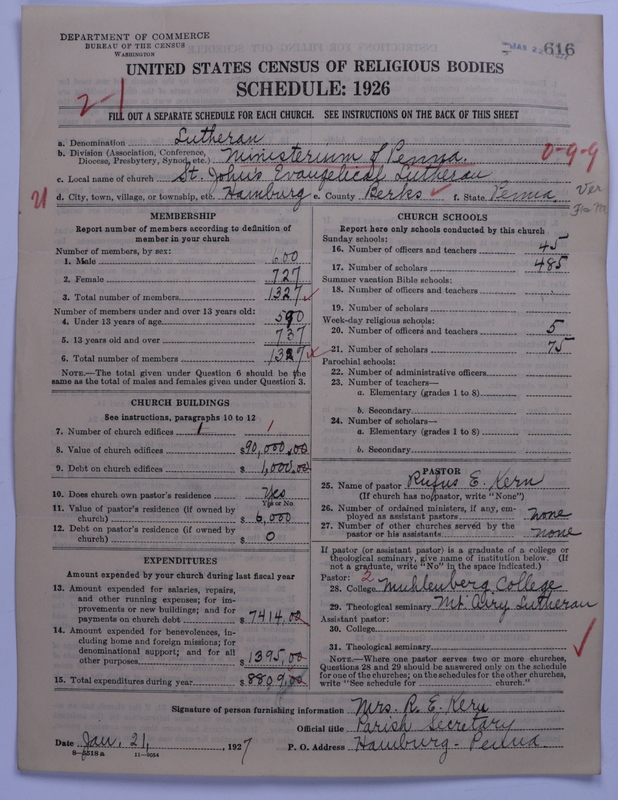 DEPARTMENT OF COMMERCE
BUREAU OF THE CENSUS
WASHINGTON
616
UNITED STATES CENSUS OF RELIGIOUS BODIES
SCHEDULE: 1926
2-1
FILL OUT A SEPARATE SCHEDULE FOR EACH CHURCH. SEE INSTRUCTIONS ON THE BACK OF THIS SHEET
a. Denomination Lutheran
b. Division (Association, Conference, Diocese, Presbytery, Synod, etc.) Ministerium of Penna.
0-9-9
c. Local name of church St. John's Evangelical Lutheran
d. City, town, village, or township, etc. Hamburg e. County Berks f. State Penna.
Ver
MEMBERSHIP
Report number of members according to definition of
member in your church
Number of members, by sex:
1. Male 600
2. Female 727
3. Total number of members 1327
Number of members under and over 13 years old:
4. Under 13 years of age 590
5. 13 years old and over 737
6. Total number of members 1327
NOTE.—The total given under Question 6 should be the
same as the total of males and females given under Question 3.
CHURCH BUILDINGS
See instructions, paragraphs 10 to 12
7. Number of church edifices 1 1
8. Value of church edifices $90,000.00
9. Debt on church edifices $1,000.00
10. Does church own pastor's residence Yes
Yes or No
11. Value of pastor's residence (if owned by
church) $6,000
12. Debt on pastor's residence (if owned by
church) $0
EXPENDITURES
Amount expended by your church during last fiscal year
13. Amount expended for salaries, repairs,
and other running expenses; for im-
provements or new buildings; and for
payments on church debt $7414.00
14. Amount expended for benevolences, in-
cluding home and foreign missions; for
denominational support; and for all
other purposes $1395.00
15. Total expenditures during year $8809.00
CHURCH SCHOOLS
Report here only schools conducted by this church
Sunday schools:
16. Number of officers and teachers 45
17. Number of scholars 485
Summer vacation Bible schools:
18. Number of officers and teachers
19. Number of scholars
Week-day religious schools:
20. Number of officers and teachers 5
21. Number of scholars 75
Parochial schools:
22. Number of administrative officers
23. Number of teachers—
a. Elementary (grades 1 to 8)
b. Secondary
24. Number of scholars—
a. Elementary (grades 1 to 8)
b. Secondary
PASTOR
25. Name of pastor Rufus E. Kern
(If church has no pastor, write "None")
26. Number of ordained ministers, if any, em-
ployed as assistant pastors none
27. Number of other churches served by the
pastor or his assistants none
If pastor (or assistant pastor) is a graduate of a college or
theological seminary, give name of institution below. (If
not a graduate, write "No" in the space indicated.)
Pastor: 2
28. College Muhlenberg College
29. Theological seminary Mt. Airy Lutheran
Assistant pastor:
30. College
31. Theological seminary
NOTE.—Where one pastor serves two or more churches,
Questions 28 and 29 should be answered only on the schedule
for one of the churches; on the schedules for the other churches,
write "See schedule for church."
Signature of person furnishing information Mrs. R. E. Kern
Official title Parish Secretary
Date Jan. 21, 1927 P. O. Address Hamburg - Penna.
8-5518 a 11-9054